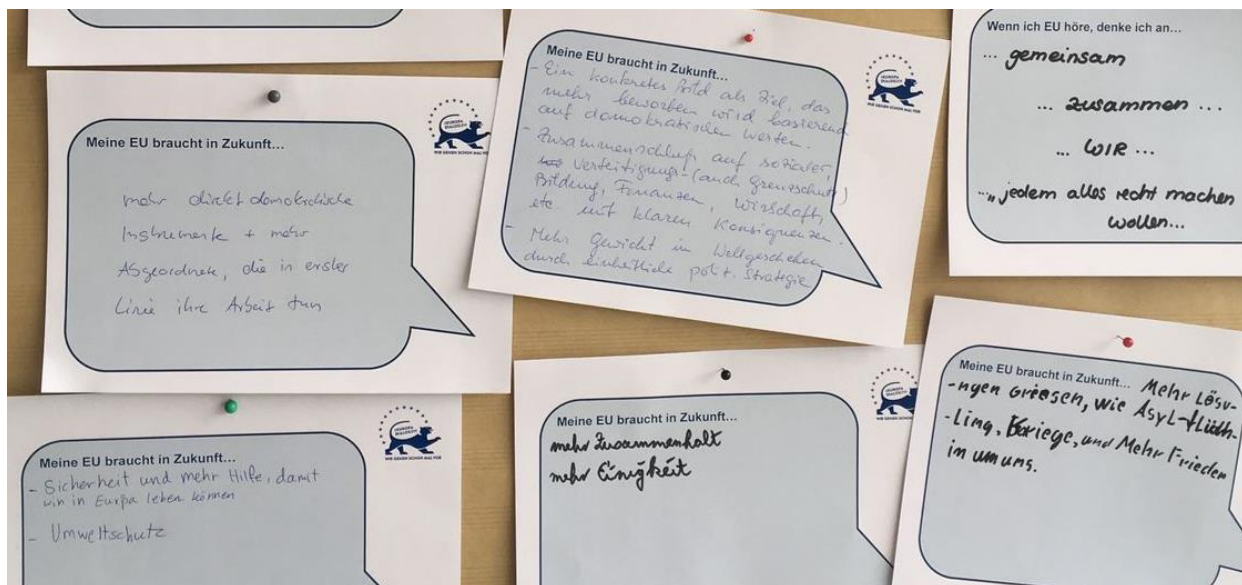 Meine EU braucht in Zukunft...
mehr direkt demokratische
Instrumente + mehr
Abgeordnete, die in erster
Linie ihre Arbeit tun
Meine EU braucht in Zukunft...
- Ein konkretes Bild als Ziel, das
mehr beworben wird basierend
auf demokratischen Werten.
- Zusammenschluß auf sozialer,
Verteitigungs-(auch Grenzschutz)
Bildung, Finanzen, Wirtschaft,
etc. mit klaren Konsequenzen.
- Mehr Gewicht im Weltgeschehen
durch einheitliche polit. Strategie
Wenn ich EU höre, denke ich an...
... gemeinsam
... zusammen ...
... WIR ...
... jedem alles recht machen
wollen...
Meine EU braucht in Zukunft...
- Sicherheit und mehr Hilfe, damit
wir in Eurpa leben können
- Umweltschutz
Meine EU braucht in Zukunft...
mehr Zusammenhalt
mehr Einigkeit
Meine EU braucht in Zukunft... Mehr Lösu-
-ngen Griesen, wie Asyl-Flücht-
-Ling, Kriege, und Mehr Frieden
in um uns.
EUROPA
DIALOG
WIR GEHEN SCHON MAL VOR